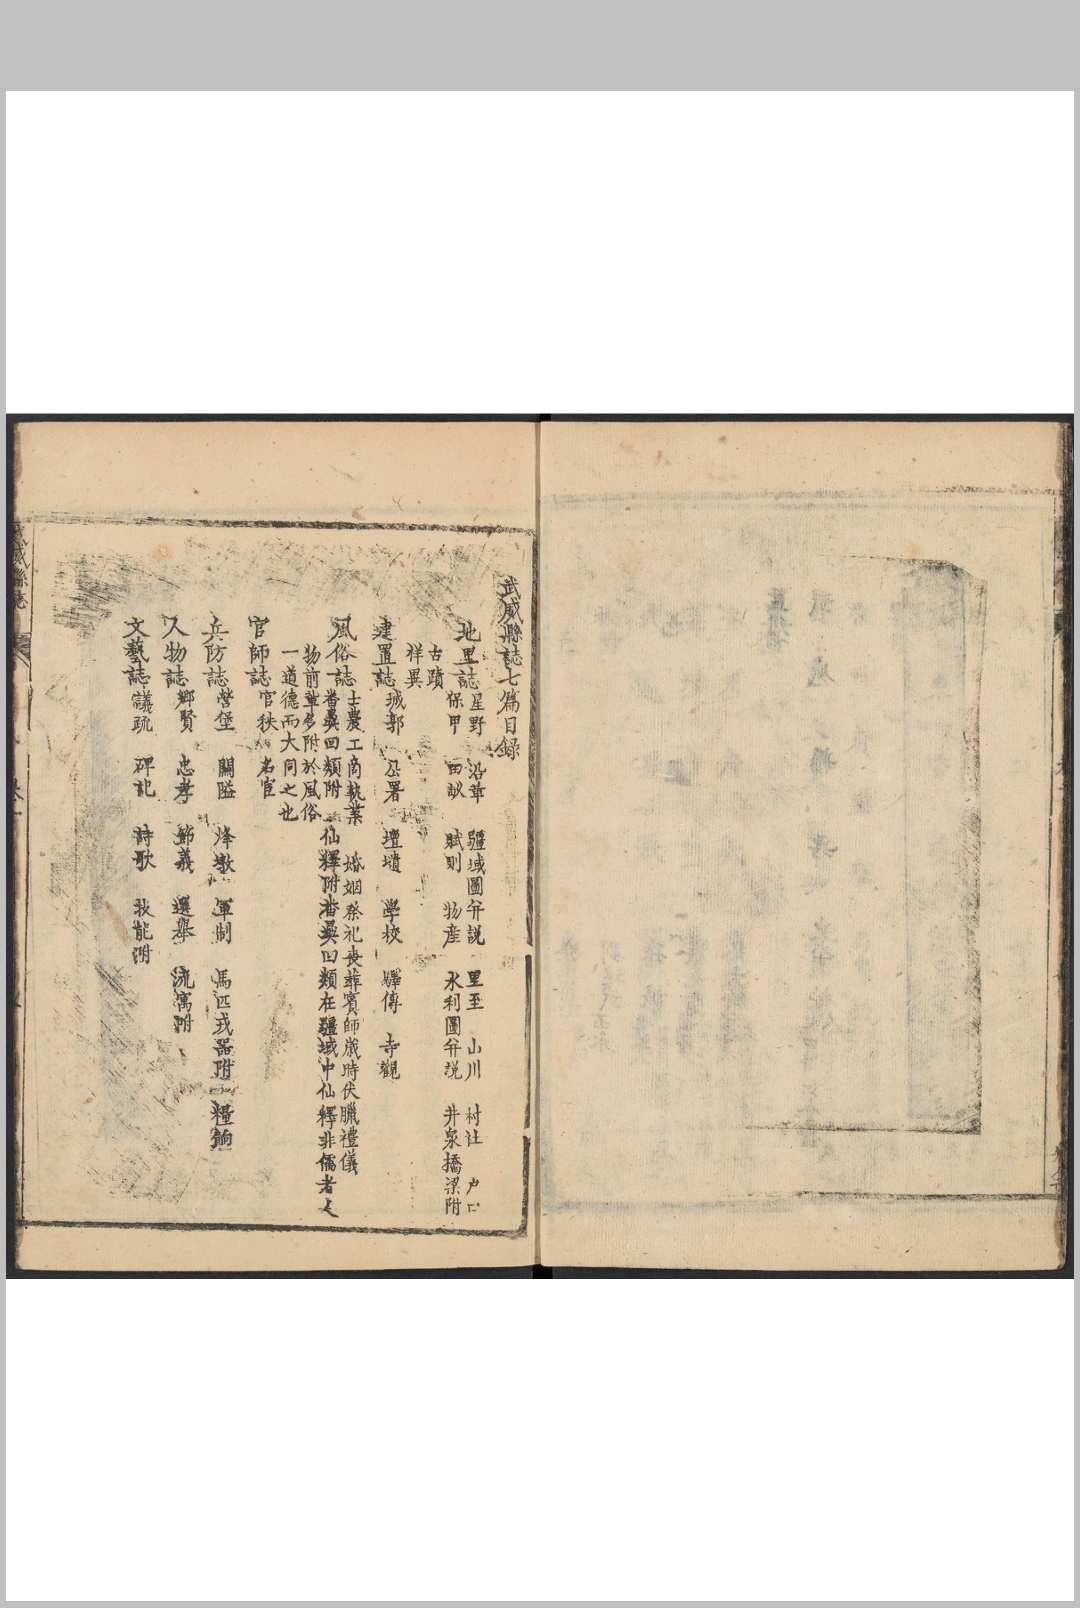 武威縣誌七篇目録
地里誌 星野 沿革 疆域圖弁説 里至 山川 村社 户口
保甲 田畝 賦則 物産 水利圖弁説 井泉橋梁附
古蹟
祥異
建置誌 城郭 公署 壇壝 學校 驛傳 寺觀
風俗誌 士農工商執業 婚姻祭祀喪葬賓師歲時伏臘禮儀
番彞回類附 仙釋附番彞回類在疆域中仙釋非儒者人
物前軰多附於風俗
一道德而大同之也
官師誌 官秩 名宦
兵防誌 營堡 關隘 烽墩 軍制 馬匹戎器附 糧餉
人物誌 鄉賢 忠孝 節義 選舉 流寓附
文藝誌 議疏 碑記 詩歌 技能附